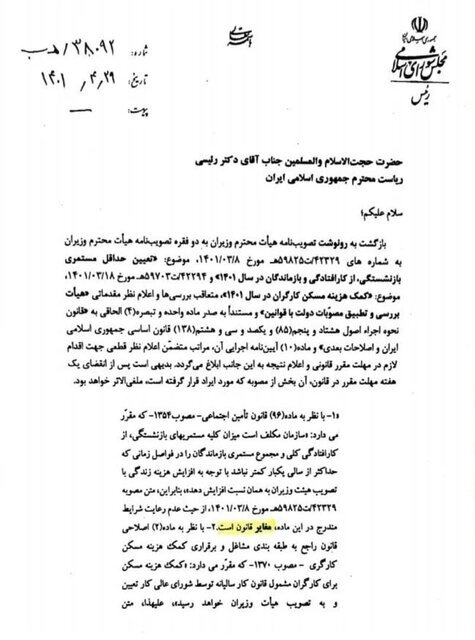 جمهوری اسلامی ایران
مجلس شورای اسلامی
رئیس
شماره: ۳۸۰۹۲/هـ‌ب
تاریخ: ۱۴۰۱/۴/۲۹
پیوست: —
حضرت حجت‌الاسلام والمسلمین جناب آقای دکتر رئیسی
ریاست محترم جمهوری اسلامی ایران
سلام علیکم؛
بازگشت به رونوشت تصویب‌نامه هیأت محترم وزیران به دو فقره تصویب‌نامه هیأت محترم وزیران
به شماره های ۴۲۳۲۹/ت۵۹۸۲۵هـ مورخ ۱۴۰۱/۰۳/۸، موضوع: «تعیین حداقل مستمری
بازنشستگی، از کارافتادگی و بازماندگان در سال ۱۴۰۱» و ۴۲۲۹۴/ت۵۹۷۰۳هـ مورخ ۱۴۰۱/۰۳/۱۸،
موضوع: «کمک هزینه مسکن کارگران در سال ۱۴۰۱»، متعاقب بررسی‌ها و اعلام نظر مقدماتی «هیأت
بررسی و تطبیق مصوّبات دولت با قوانین» و مستنداً به صدر ماده واحده و تبصره(۴) الحاقی به «قانون
نحوه اجراء اصول هشتاد و پنجم(۸۵) و یکصد و سی و هشتم(۱۳۸) قانون اساسی جمهوری اسلامی
ایران و اصلاحات بعدی» و ماده(۱۰) آیین‌نامه اجرایی آن، مراتب متضمّن اعلام نظر قطعی جهت اقدام
لازم در مهلت مقرر قانونی و اعلام نتیجه به این جانب ابلاغ می‌گردد. بدیهی است پس از انقضای یک
هفته مهلت مقرر در قانون، آن بخش از مصوبه که مورد ایراد قرار گرفته است، ملغی‌الاثر خواهد بود.
«۱- با نظر به ماده(۹۶) قانون تأمین اجتماعی- مصوب۱۳۵۴- که مقرّر
می دارد: «سازمان مکلف است میزان کلیه مستمریهای بازنشستگی، از
کارافتادگی کلی و مجموع مستمری بازماندگان را در فواصل زمانی که
حداکثر از سالی یکبار کمتر نباشد با توجه به افزایش هزینه زندگی با
تصویب هیئت وزیران به همان نسبت افزایش دهد»، بنابراین، متن مصوبه
۴۲۳۲۹/ت۵۹۸۲۵هـ مورخ ۱۴۰۱/۰۳/۸، از حیث عدم رعایت شرایط
مندرج در این ماده، مغایر قانون است. ۲- با نظر به ماده(۲) اصلاحی
قانون راجع به طبقه بندی مشاغل و برقراری کمک هزینه مسکن
کارگری - مصوب ۱۳۷۰- که مقرر می دارد: «کمک هزینه مسکن
برای کارگران مشمول قانون کار سالیانه توسط شورای عالی کار تعیین
و به تصویب هیأت وزیران خواهد رسید»، علیهذا، متن